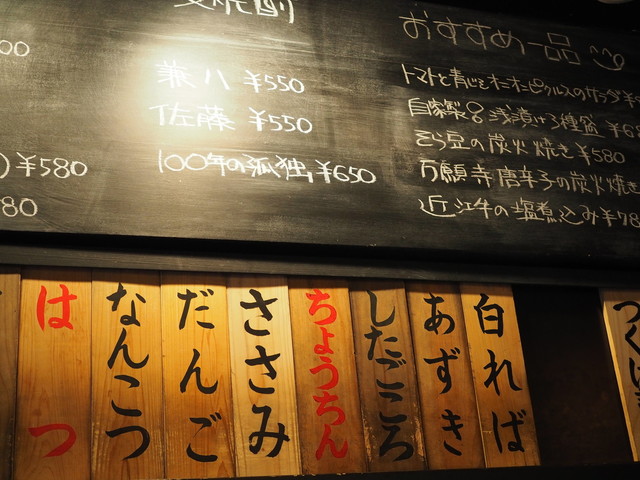 麦焼酎
兼八 ¥550
佐藤 ¥550
100年の孤独 ¥650
00
¥580
80
おすすめ一品
トマトと青じそオニオンピクルスのサラダ
自家製の浅漬け3種盛
そら豆の炭火焼き ¥580
万願寺唐辛子の炭火焼き
近江牛の塩煮込み ¥78
白ればー
あずき
したごころ
ちょうちん
ささみ
だんご
なんこつ
はつ